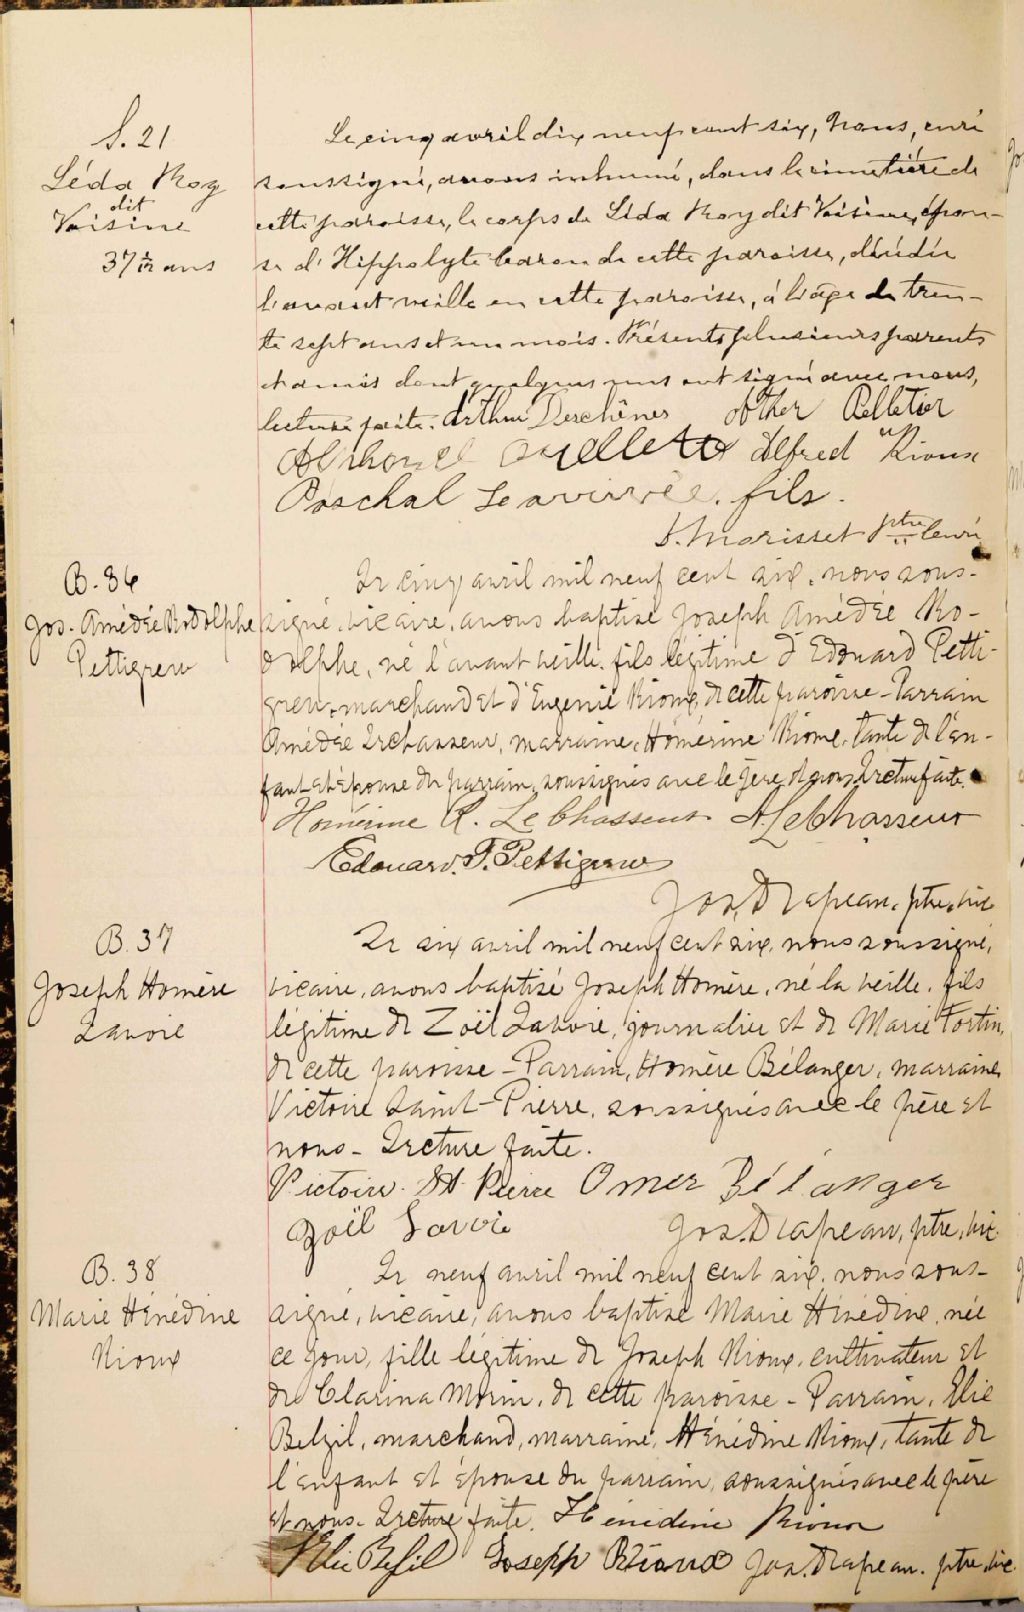 S. 21
Léda Roy
dit
Voisine
37 1/12 ans
Le cinq avril dix neuf cent six, Nous, curé
soussigné, avons inhumé, dans le cimetière de
cette paroisse, le corps de Léda Roy dit Voisine, épou-
se d'Hippolyte Caron de cette paroisse, décédée
l'avant veille en cette paroisse, à l'âge de tren-
te sept ans et un mois. Présents plusieurs parents
et amis dont quelques uns ont signé avec nous,
lecture faite. Arthur Deschênes Pelletier
Ouellette Alfred Rioux
Paschal Lavivrée, fils.
Morisset ptre Curé
B. 36
Jos. Amédée Rodolphe
Pettigrew
Le cinq avril mil neuf cent six, nous sous-
signé, vicaire, avons baptisé Joseph Amédée Ro-
dolphe, né l'avant veille, fils légitime d'Edouard Petti-
grew, marchand et d'Eugenie Rioux, de cette paroisse - Parrain
Amédée Lechasseur, marraine, Homérine Rioux, tante de l'en-
fant et épouse du parrain, soussignés avec le père et nous. Lecture faite.
Homérine R. LeChasseur A. LeChasseur
Edouard. T. Pettigrew
Jos. Drapeau, ptre, vic
B. 37
Joseph Homère
Lavoie
Le six avril mil neuf cent six, nous soussigné,
vicaire, avons baptisé Joseph Homère, né la veille, fils
légitime de Zoël Lavoie, journalier et de Marie Fortin,
de cette paroisse - Parrain, Homère Bélanger, marraine,
Victoire Saint-Pierre, soussignés avec le père et
nous - Lecture faite.
Victoire St Pierre Omer Bélanger
Zoël Lavoie Jos. Drapeau, ptre, vic.
B. 38
Marie Hénédine
Rioux
Le neuf avril mil neuf cent six, nous sous-
signé, vicaire, avons baptisé Marie Hénédine, née
ce jour, fille légitime de Joseph Rioux, cultivateur et
de Clarina Morin, de cette paroisse - Parrain, Elie
Belzil, marchand, marraine, Hénédine Rioux, tante de
l'enfant et épouse du parrain, soussignés avec le père
et nous. Lecture faite. Hénédine Rioux
Elie Belzil Joseph Rioux Jos. Drapeau. ptre, vic.